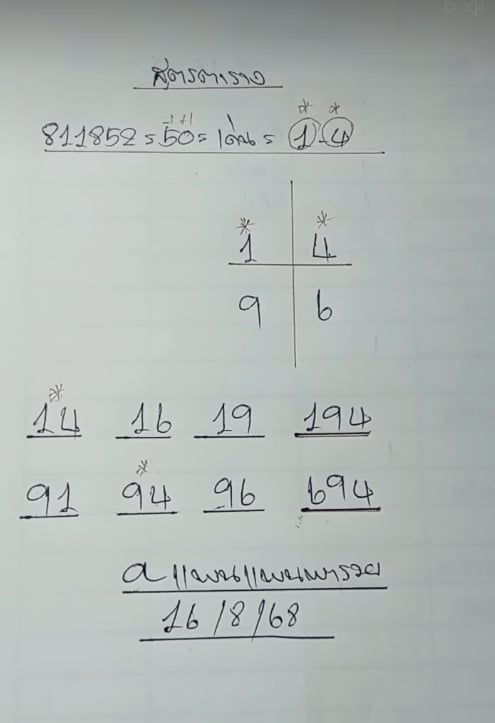 สูตรตาราง
-1 +1
811852 = 50 = เด่น = 1-4
1 4
9 6
14 16 19 194
91 94 96 694
16/8/68